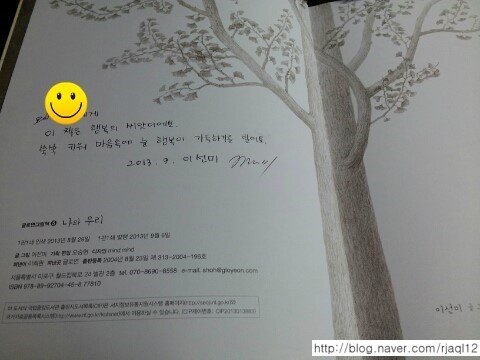 에게
이 책은 행복의 씨앗이에요.
쑥쑥 키워 마음속에 늘 행복이 가득하기를 빌어요.
2013. 9. 이선미
글로연그림책 나와 우리
1판1쇄 인쇄 2013년 8월 28일 1판1쇄 발행 2013년 9월 5일
글 그림 이선미 기획 편집 오승현 디자인
펴낸이 이희원 펴낸곳 글로연 출판등록 2004년 8월 23일 제 313-2004-196호
서울특별시 마포구 월드컵북로 24 별관 2층 tel. 070-8690-8558 e-mail. shoh@gloyeon.com
ISBN 978-89-92704-45-8 77810
이선미
http://blog.naver.com/rjaql12